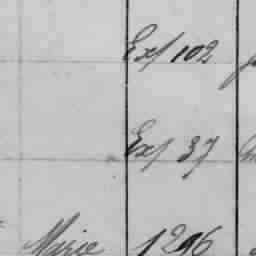 Exp 102
Exp 37
Marie 1296